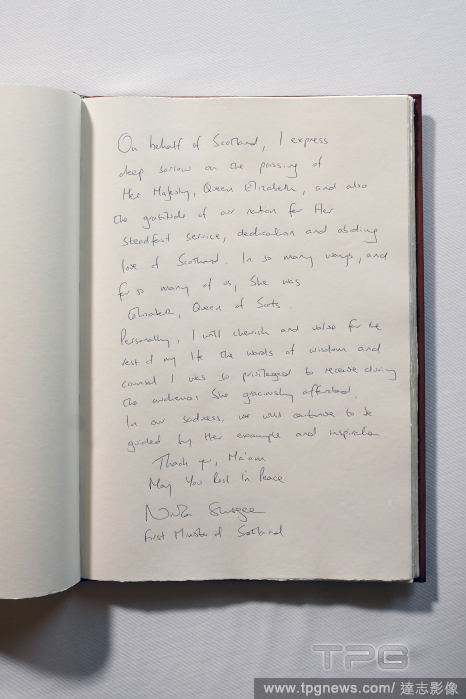 On behalf of Scotland, I express
deep sorrow on the passing of
Her Majesty, Queen Elizabeth, and also
the gratitude of our nation for Her
steadfast service, dedication and abiding
love of Scotland. In so many ways, and
for so many of us, She was
Elizabeth, Queen of Scots.
Personally, I will cherish and value for the
rest of my life the words of wisdom and
counsel I was so privileged to receive during
the audiences She graciously afforded.
In our sadness, we will continue to be
guided by Her example and inspiration
Thank you, Ma'am
May You Rest In Peace
Nicola Sturgeon
First Minister of Scotland
TPG
www.tpgnews.com/ 達志影像